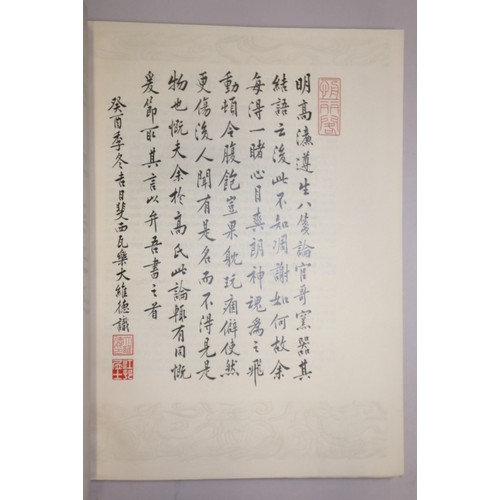 明高濂遵生八箋論官哥窯器其
結語云後此不知凋謝如何故余
每得一睹心目爽朗神魂為之飛
動頓令腹飽豈果躭玩痼僻使然
更傷後人聞有是名而不得見是
物也慨夫余於高氏此論輒有同慨
爰節取其言以弁吾書之首
癸酉季冬吉日斐西瓦樂大維德識